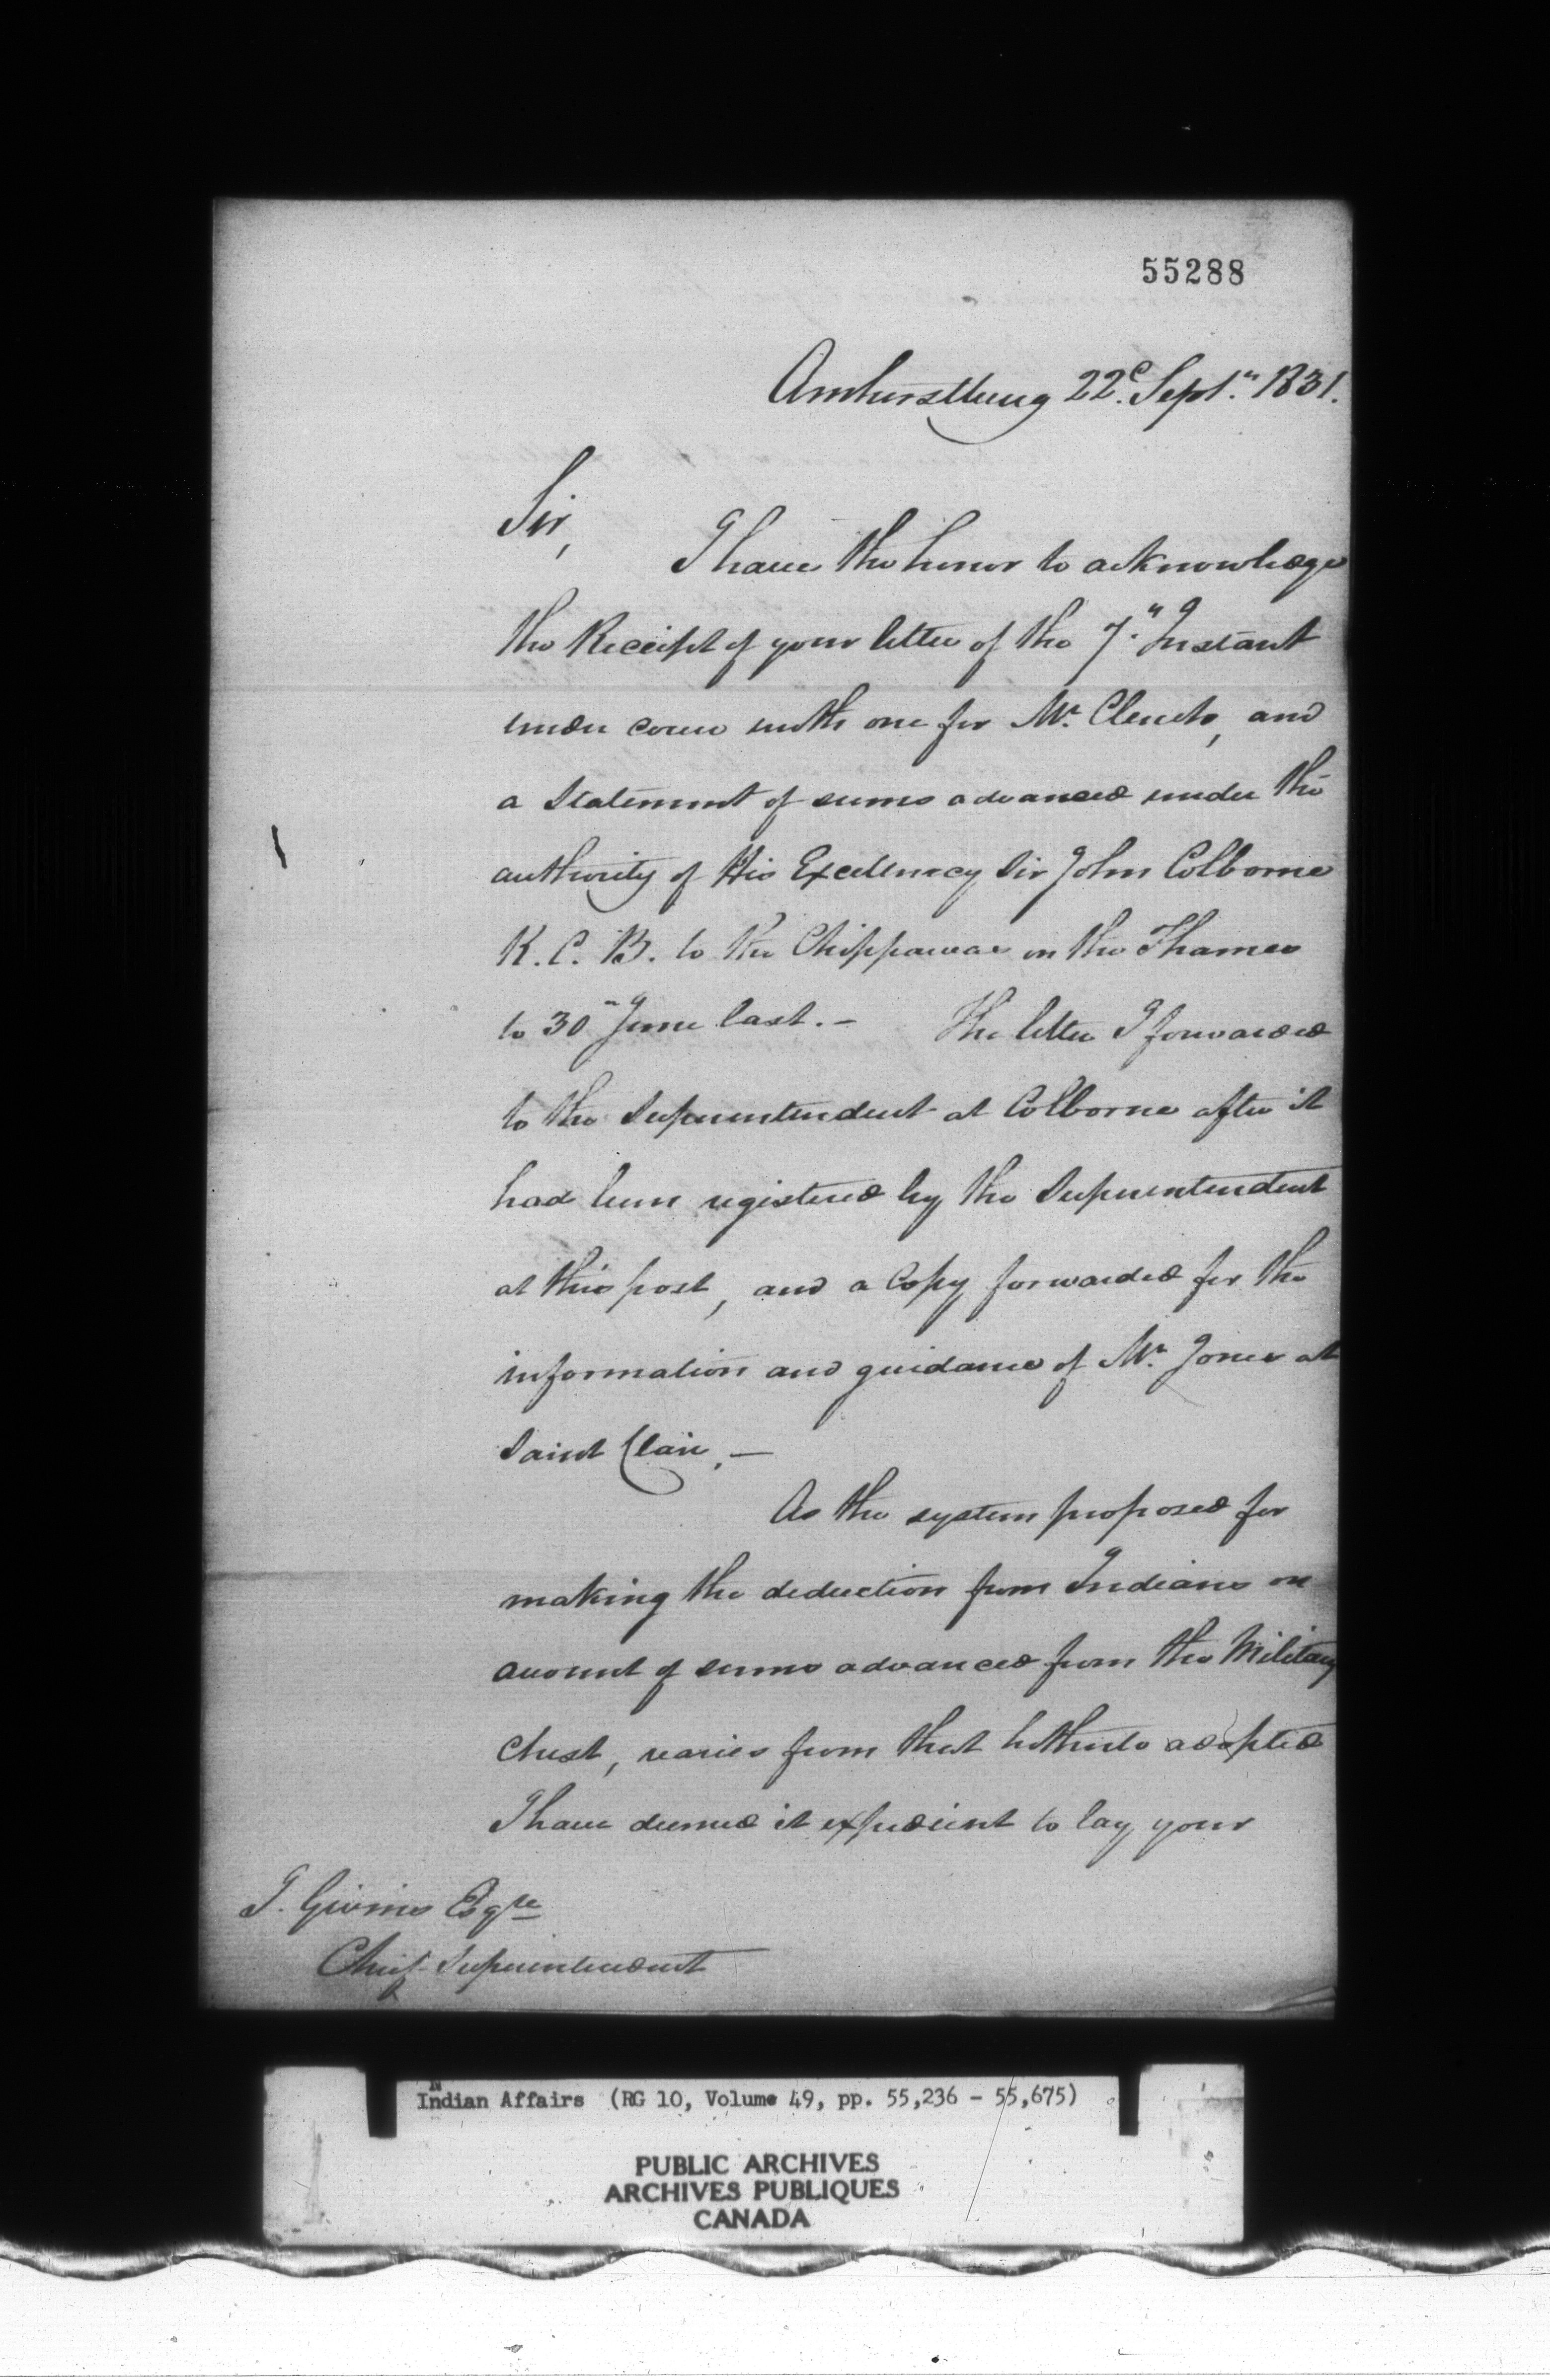 55288
Amherstburg 22d. Septr. 1831.
Sir,
I have the honor to acknowledge
the Receipt of your letter of the 7." Instant
under cover with one for Mr. Clench, and
a Statement of sums advanced under the
authority of His Excellency Sir John Colborne
K. C. B. to the Chippawas on the Thames
to 30" June last. — The letter I forwarded
to the Superintendent at Colborne after it
had been registered by the Superintendent
at this post, and a Copy forwarded for the
information and guidance of Mr. Jones at
Saint Clair. —
As the system proposed for
making the deduction from Indians on
account of sums advanced from the Military
Chest, varies from that hitherto adopted
I have deemed it expedient to lay your
J. Givins Esqre
Chief Superintendent
Indian Affairs (RG 10, Volume 49, pp. 55,236 - 55,675)
PUBLIC ARCHIVES
ARCHIVES PUBLIQUES
CANADA